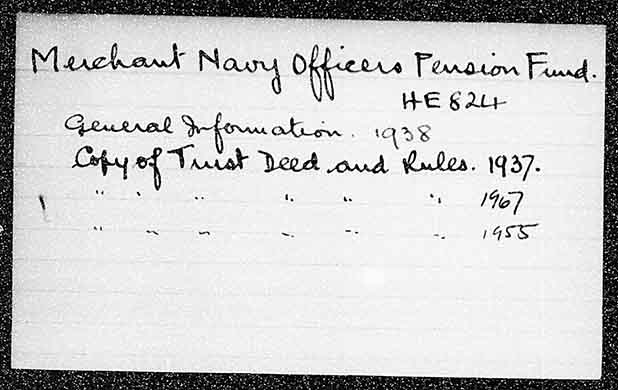 Merchant Navy Officers Pension Fund.
HE824
General Information. 1938
Copy of Trust Deed and Rules. 1937.
" " " " " " 1967
" " " " " " 1955